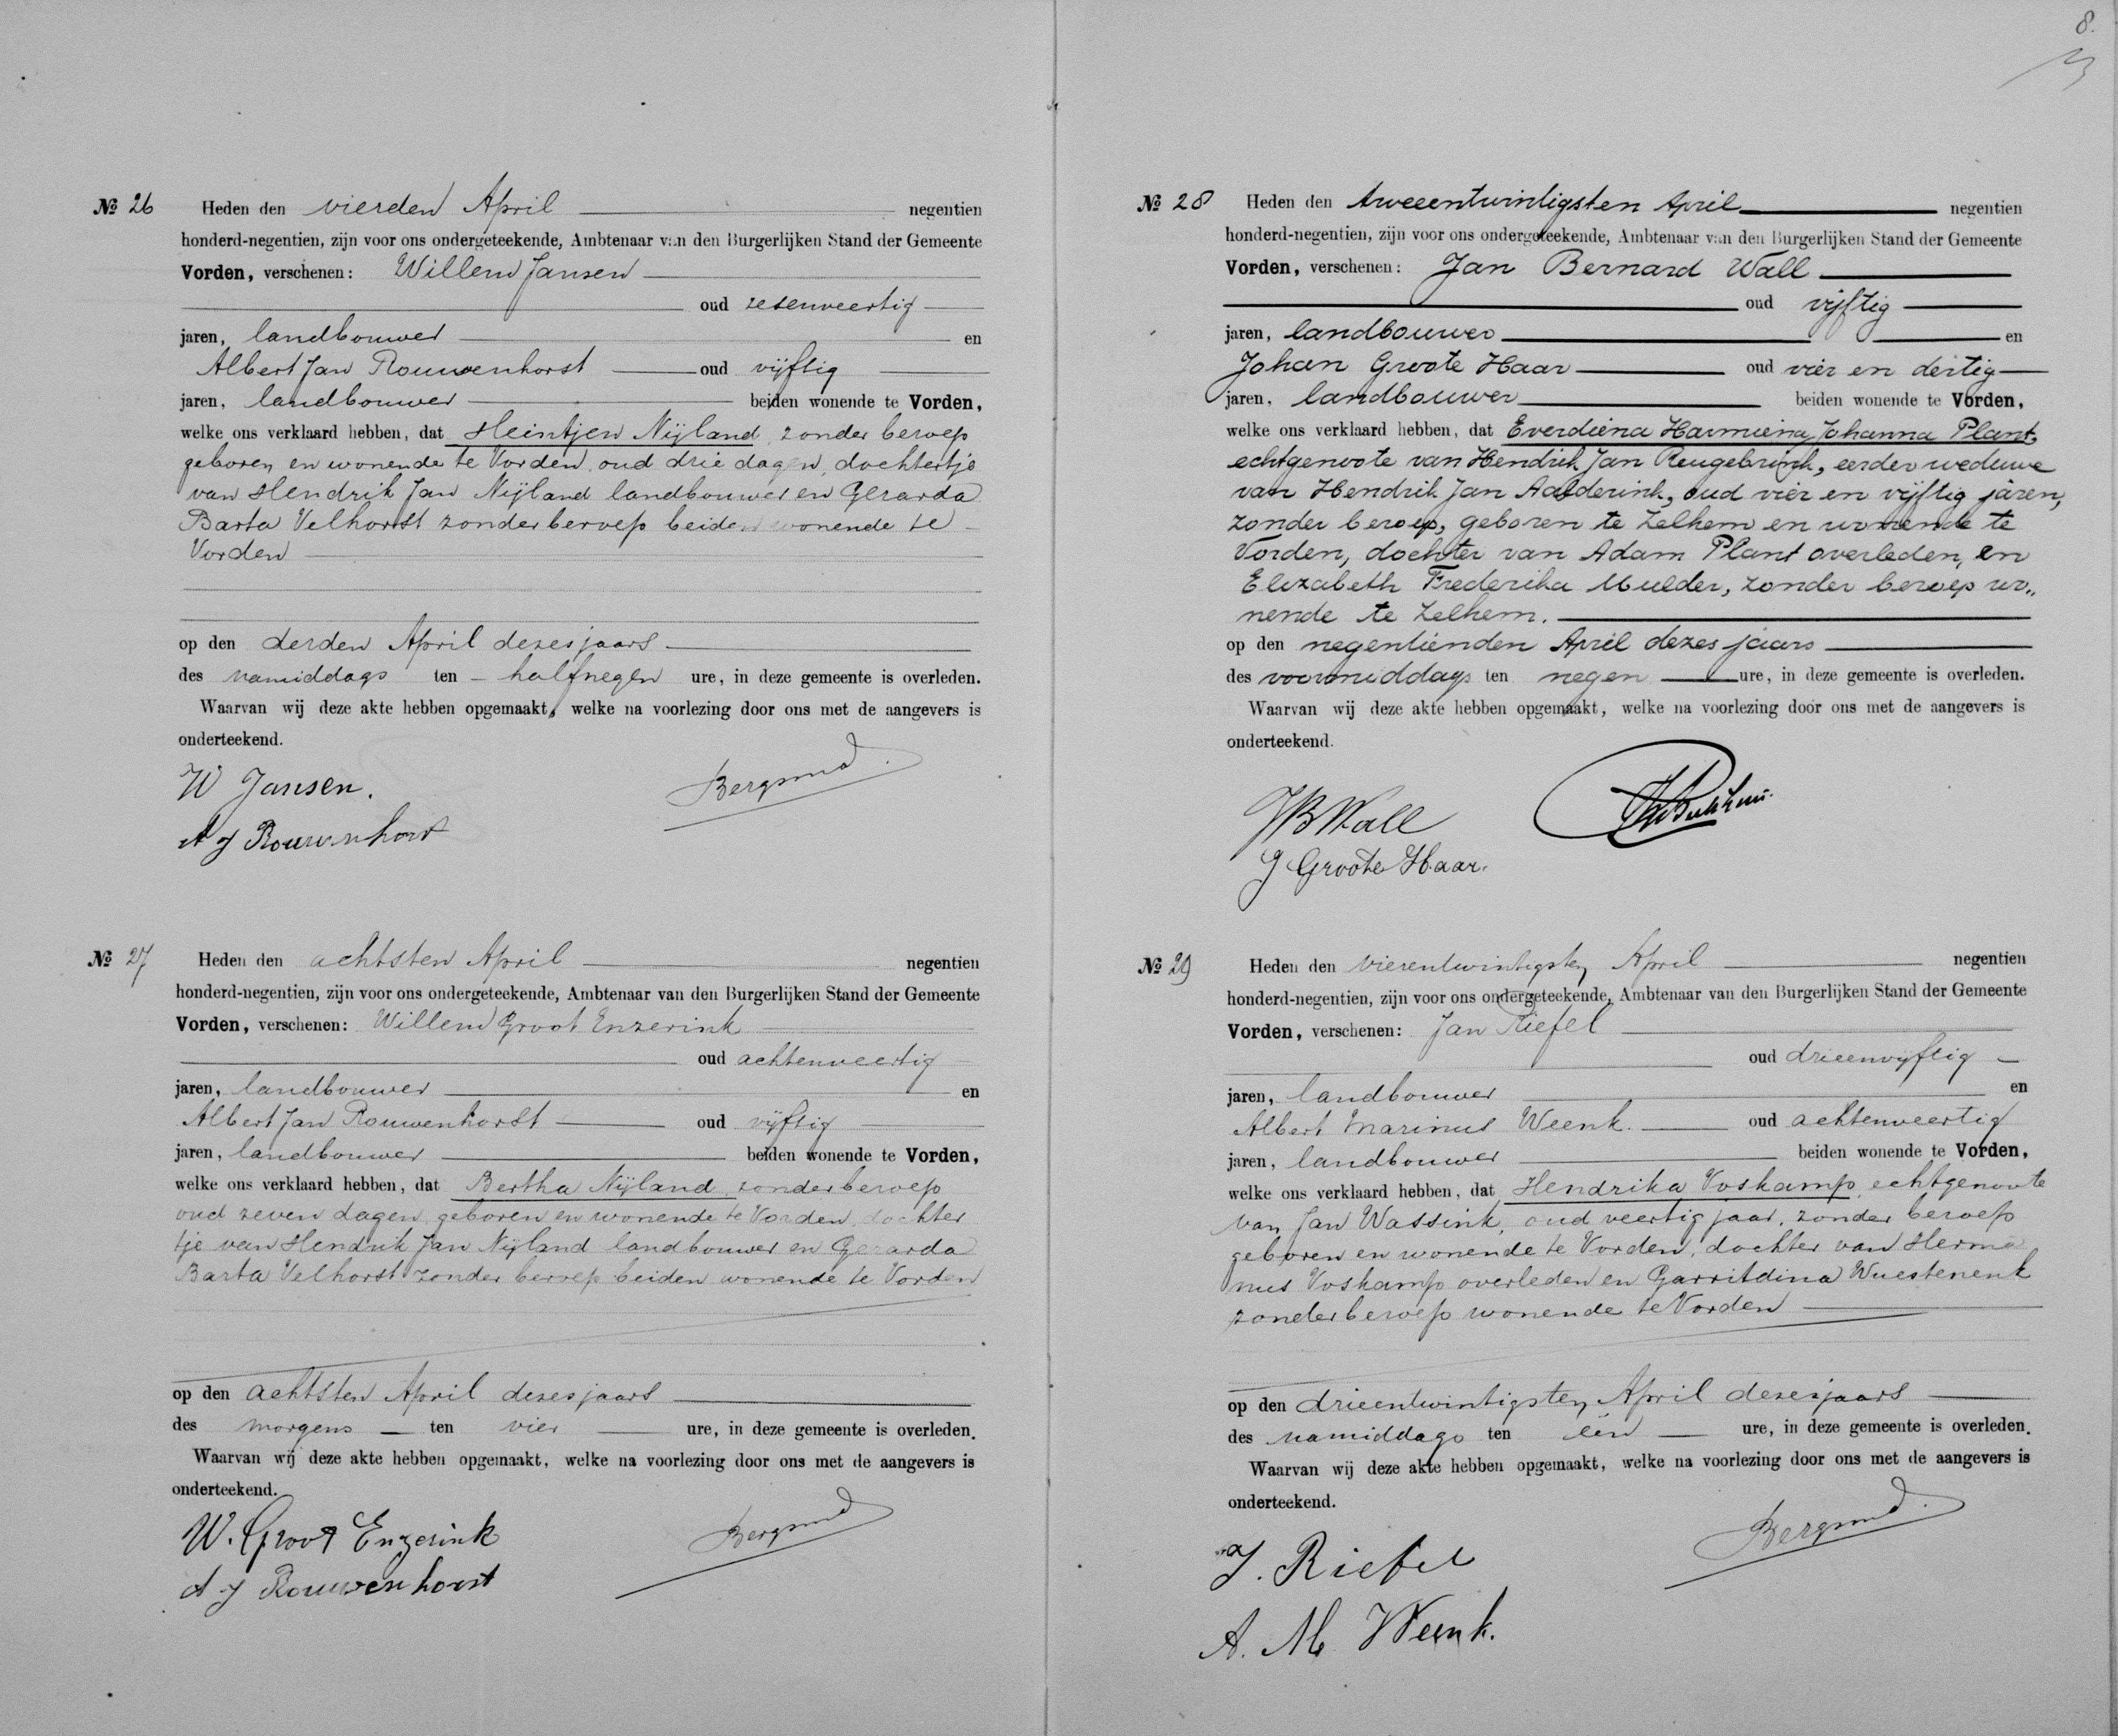 8.
№ 26 Heden den vierden April negentien
honderd-negentien, zijn voor ons ondergeteekende, Ambtenaar van den Burgerlijken Stand der Gemeente
Vorden, verschenen: Willem Jansen
oud zesenveertig
jaren, landbouwer en
Albert Jan Rouwenhorst oud vijftig
jaren, landbouwer beiden wonende te Vorden,
welke ons verklaard hebben, dat Heintjen Nijland, zonder beroep
geboren en wonende te Vorden, oud drie dagen, dochtertje
van Hendrik Jan Nijland landbouwer en Gerarda
Barta Velhorst zonder beroep beiden wonende te
Vorden
op den derden April dezes jaars
des namiddags ten half negen ure, in deze gemeente is overleden.
Waarvan wij deze akte hebben opgemaakt, welke na voorlezing door ons met de aangevers is
onderteekend.
W Jansen.
A J Rouwenhorst
Bergsma
№ 27 Heden den achtsten April negentien
honderd-negentien, zijn voor ons ondergeteekende, Ambtenaar van den Burgerlijken Stand der Gemeente
Vorden, verschenen: Willem Groot Enzerink
oud achtenveertig
jaren, landbouwer en
Albert Jan Rouwenhorst oud vijftig
jaren, landbouwer beiden wonende te Vorden,
welke ons verklaard hebben, dat Bertha Nijland, zonder beroep
oud zeven dagen, geboren en wonende te Vorden, dochter
tje van Hendrik Jan Nijland landbouwer en Gerarda
Barta Velhorst zonder beroep beiden wonende te Vorden
op den achtsten April dezes jaars
des morgens ten vier ure, in deze gemeente is overleden.
Waarvan wij deze akte hebben opgemaakt, welke na voorlezing door ons met de aangevers is
onderteekend.
W. Groot Enzerink
A J Rouwenhorst
Bergsma
№ 28 Heden den tweeentwintigsten April negentien
honderd-negentien, zijn voor ons ondergeteekende, Ambtenaar van den Burgerlijken Stand der Gemeente
Vorden, verschenen: Jan Bernard Wall
oud vijftig
jaren, landbouwer en
Johan Groote Haar oud vier en dertig
jaren, landbouwer beiden wonende te Vorden,
welke ons verklaard hebben, dat Everdiena Harmiena Johanna Plant,
echtgenoote van Hendrik Jan Reugebrink, eerder weduwe
van Hendrik Jan Aalderink, oud vier en vijftig jaren,
zonder beroep, geboren te Zelhem en wonende te
Vorden, dochter van Adam Plant overleden, en
Elizabeth Frederika Mulder, zonder beroep wo„
nende te Zelhem.
op den negentienden April dezes jaars
des voormiddags ten negen ure, in deze gemeente is overleden.
Waarvan wij deze akte hebben opgemaakt, welke na voorlezing door ons met de aangevers is
onderteekend.
JB Wall
J Groote Haar.
№ 29 Heden den vierentwintigsten April negentien
honderd-negentien, zijn voor ons ondergeteekende, Ambtenaar van den Burgerlijken Stand der Gemeente
Vorden, verschenen: Jan Riefel
oud drieenvijftig
jaren, landbouwer en
Albert Marinus Weenk. oud achtenveertig
jaren, landbouwer beiden wonende te Vorden,
welke ons verklaard hebben, dat Hendrika Voskamp, echtgenoote
van Jan Wassink, oud veertig jaar, zonder beroep
geboren en wonende te Vorden, dochter van Herma
nus Voskamp overleden en Garritdina Wuestenenk
zonder beroep wonende te Vorden
op den drieentwintigsten April dezes jaars
des namiddags ten één ure, in deze gemeente is overleden.
Waarvan wij deze akte hebben opgemaakt, welke na voorlezing door ons met de aangevers is
onderteekend.
J. Riefel
A. M. Weenk.
Bergsma